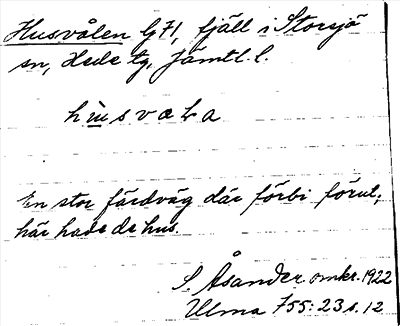 Husvålen G71, fjäll i Storsjö
sn, Hede tg, Jämtl. l.
hùsvaLa
En stor färdväg där förbi förut,
här hade de hus.
S. Åsander omkr. 1922
Ulma 755:23 s. 12